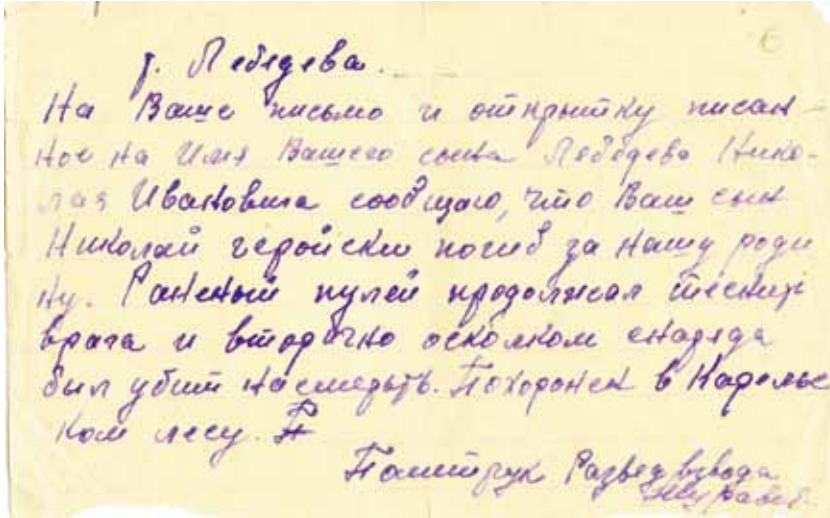 г. Лебедева.
На Ваше письмо и открытку писан-
ное на Имя Вашего сына Лебедева Нико-
лая Ивановича сообщаю, что Ваш сын
Николай геройски погиб за нашу роди
ну. Раненый пулей продолжал теснить
врага и вторично осколком снаряда
был убит насмерть. Похоронен в Карельс
ком лесу.
Политрук Развед взвода